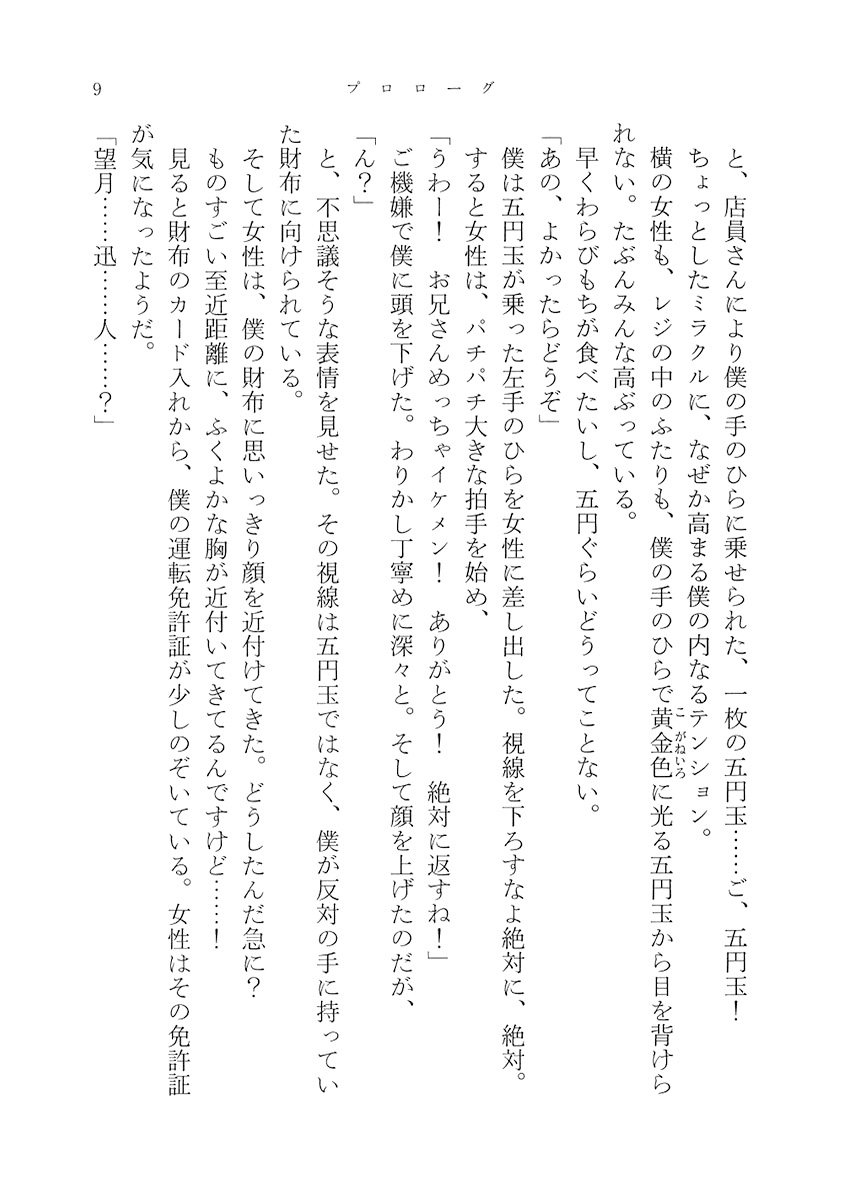 9
プロローグ
　と、店員さんにより僕の手のひらに乗せられた、一枚の五円玉……ご、五円玉！
　ちょっとしたミラクルに、なぜか高まる僕の内なるテンション。
　横の女性も、レジの中のふたりも、僕の手のひらで黄金色に光る五円玉から目を背けら
こがねいろ
れない。たぶんみんな高ぶっている。
　早くわらびもちが食べたいし、五円ぐらいどうってことない。
「あの、よかったらどうぞ」
　僕は五円玉が乗った左手のひらを女性に差し出した。視線を下ろすなよ絶対に、絶対。
　すると女性は、パチパチ大きな拍手を始め、
「うわー！　お兄さんめっちゃイケメン！　ありがとう！　絶対に返すね！」
　ご機嫌で僕に頭を下げた。わりかし丁寧めに深々と。そして顔を上げたのだが、
「ん？」
　と、不思議そうな表情を見せた。その視線は五円玉ではなく、僕が反対の手に持ってい
た財布に向けられている。
　そして女性は、僕の財布に思いっきり顔を近付けてきた。どうしたんだ急に？
　ものすごい至近距離に、ふくよかな胸が近付いてきてるんですけど……！
　見ると財布のカード入れから、僕の運転免許証が少しのぞいている。女性はその免許証
が気になったようだ。
「望月……迅……人……？」